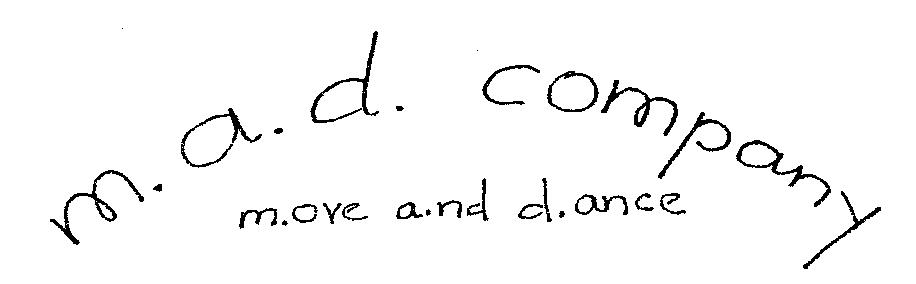 m.a.d. company
m.ove a.nd d.ance